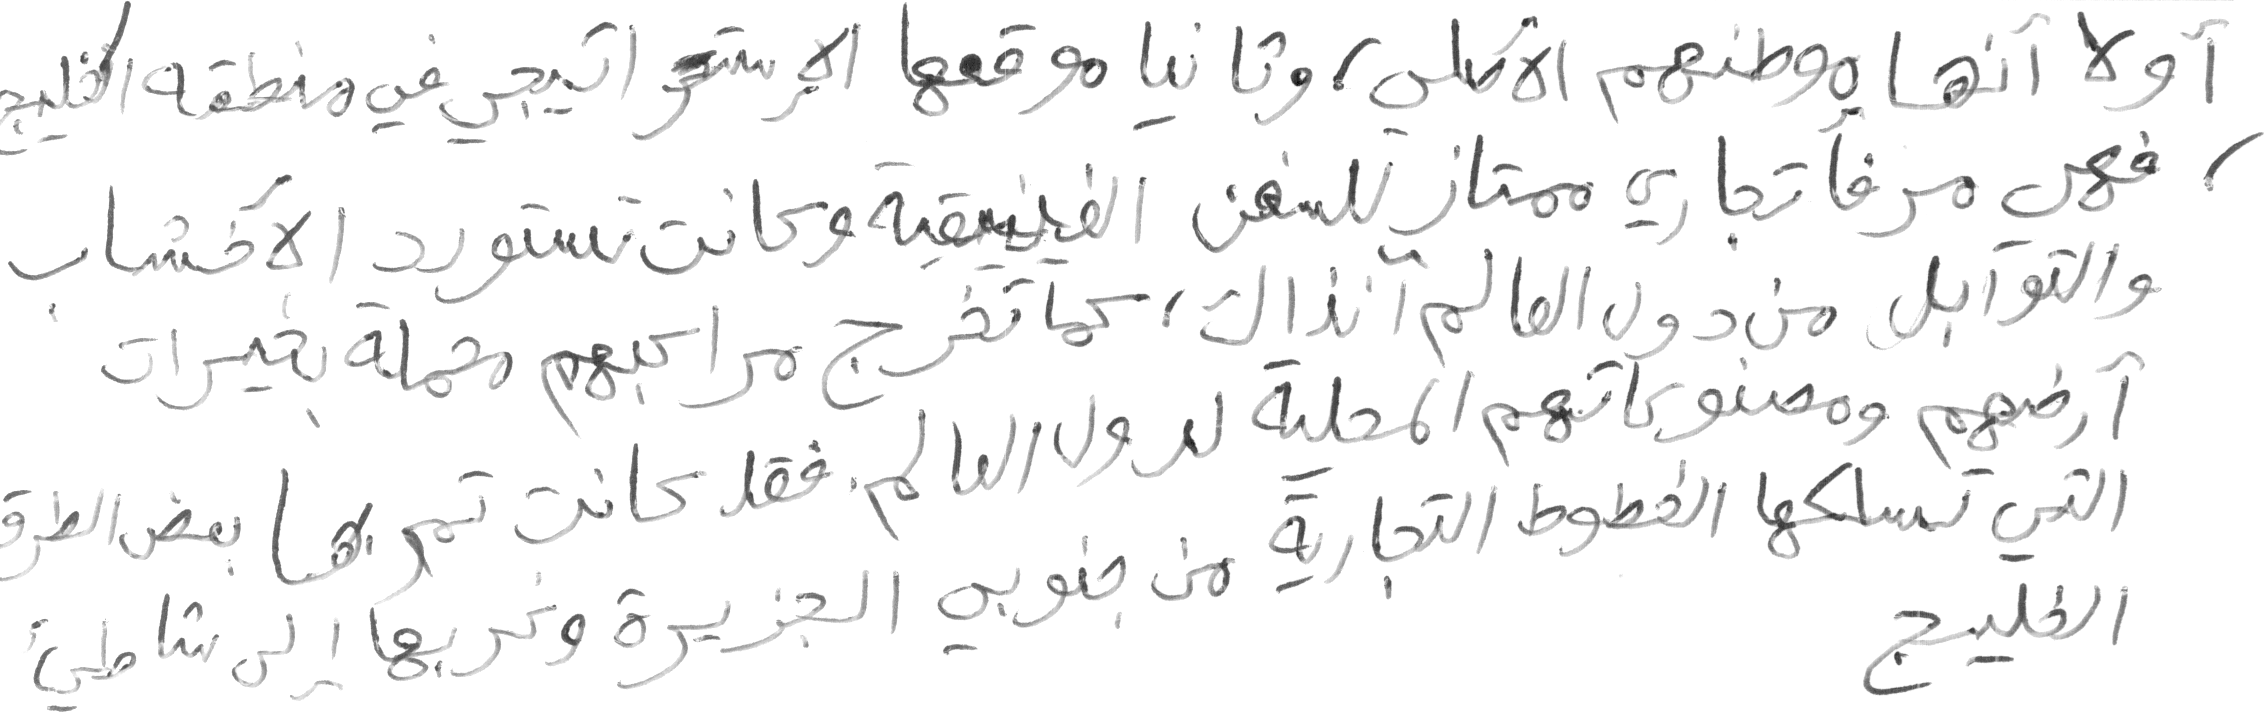 أولا أنها موطنهم الأصلي، وثانيا موقعها الإستراتيجي في منطقة الخليج
، فهي مرفأ تجاري ممتاز للسفن الفينيقية وكانت تستورد الأخشاب
والتوابل من دول العالم آنذاك، كما تخرج مراكبهم محملة بخيرات
أرضهم ومصنوعاتهم المحلية لدول العالم. فقد كانت تمر بها بعض الطرق
التي تسلكها الخطوط التجارية من جنوبي الجزيرة وغربها إلى شاطئ
الخليج